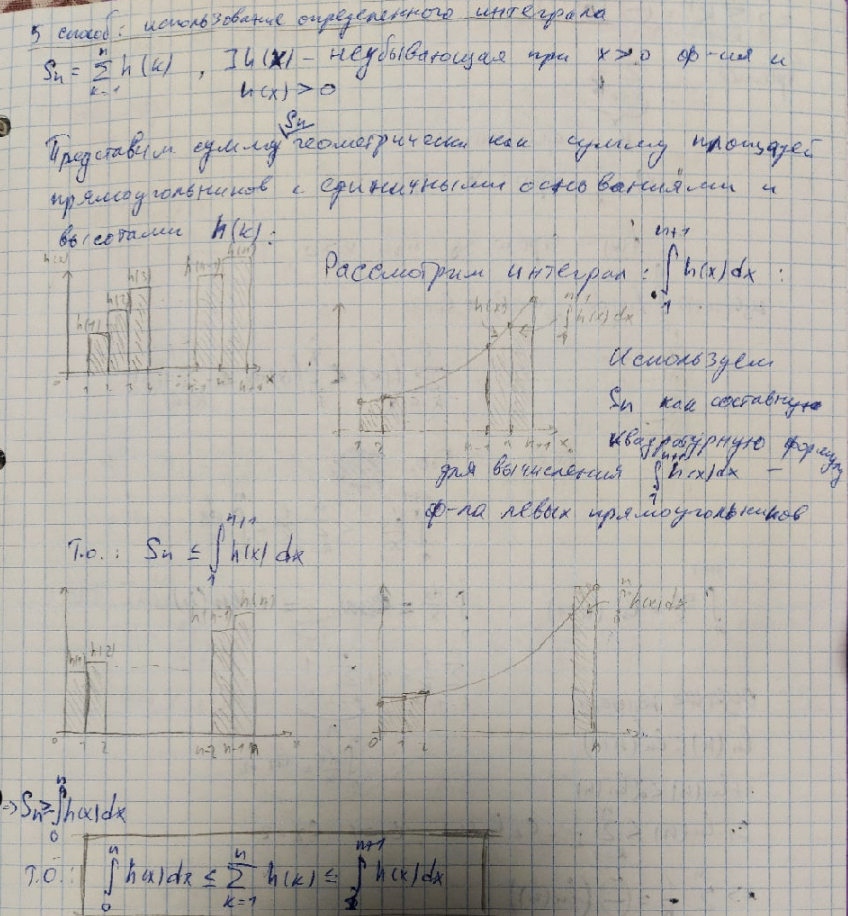 5 способ: использование определенного интеграла
Sn = ∑_{k=1}^{n} h(k) , ∃ h(x) – неубывающая при x > 0 ф-ия и
h(x) > 0
Представим сумму Sn геометрически как сумму площадей
прямоугольников с единичными основаниями и
высотами h(k):
Рассмотрим интеграл: ∫_{1}^{n+1} h(x)dx :
h(1) h(2) h(3) h(n-1) h(n)
1 2 3 4 n-1 n n+1 x
h(x) ∫ h(x)dx
1 2 n-1 n n+1 x
Используем
Sn как составную
квадратурную формулу
для вычисления ∫_{1}^{n+1} h(x)dx –
ф-ла левых прямоугольников
Т.о.: Sn ≤ ∫_{1}^{n+1} h(x) dx
h(1) h(2) h(n-1) h(n)
0 1 2 n-2 n-1 n x
∫_{0}^{n} h(x)dx
0 1 2 n
=> Sn ≥ ∫_{0}^{n} h(x)dx
Т.О.: ∫_{0}^{n} h(x)dx ≤ ∑_{k=1}^{n} h(k) ≤ ∫_{1}^{n+1} h(x)dx